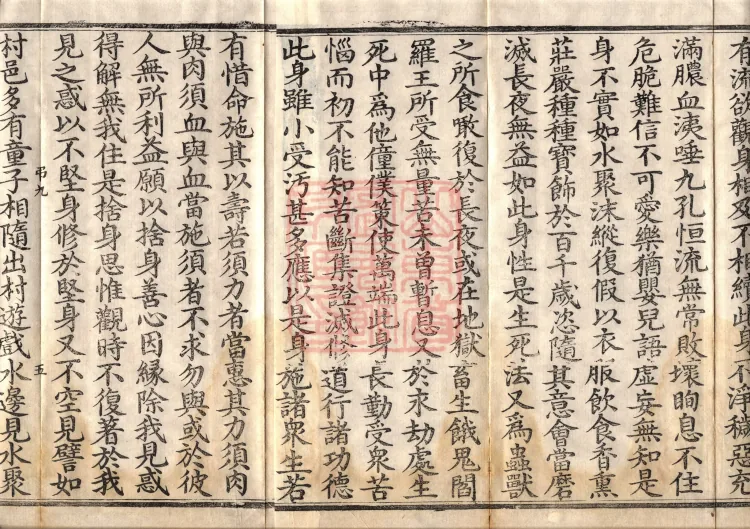 有流欲觀身相及不相續此身不淨穢惡充
滿膿血洟唾九孔恒流無常敗壞眴息不住
危脆難信不可愛樂猶嬰兒語虛妄無知是
身不實如水聚沫縱復假以衣服飲食香熏
莊嚴種種寶飾於百千歲恣隨其意會當磨
滅長夜無益如此身性是生死法又爲蟲獸
之所食噉復於長夜或在地獄畜生餓鬼閻
羅王所受無量苦未曾暫息又於求劫處生
死中爲他僮僕策使萬端此身長勤受衆苦
惱而初不能知苦斷集證滅修道行諸功德
此身雖小受汚甚多應以是身施諸衆生若
有惜命施其以壽若須力者當惠其力須肉
與肉須血與血當施須者不求勿與或於彼
人無所利益願以捨身善心因緣除我見惑
得解無我住是捨身思惟觀時不復著於我
見之惑以不堅身修於堅身又不空見譬如
弔九 五
村邑多有童子相隨出村遊戲水邊見水聚